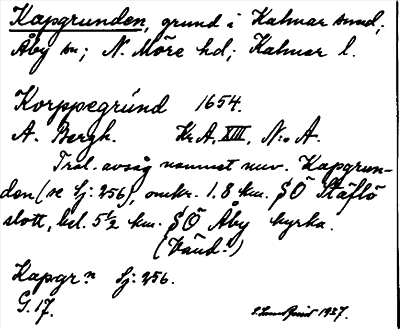 Kapgrunden, grund i Kalmar sund;
Åby sn; N. Möre hd; Kalmar l.
Korppegrúnd 1654.
A. Bergh. Kr A, XIII, N:o A.
Trol. avsåg namnet nuv. Kapgrun-
den (se Sj: 256), omkr. 1.8 km. SÖ Stäflö
slott, bel. 5½ km. SÖ Åby kyrka.
Kapgr.n Sj: 256.
G. 17. 1937.